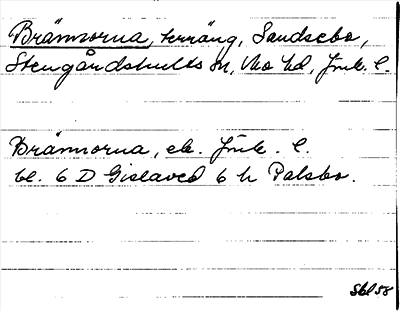 Brännorna, terräng, Sandsebo,
Stengårdshults sn, Mo hd, Jönk. l.
Brännorna, ek. Jönk. l.
bl. 6 D Gislaved 6 h Palsbo.
Skl 58